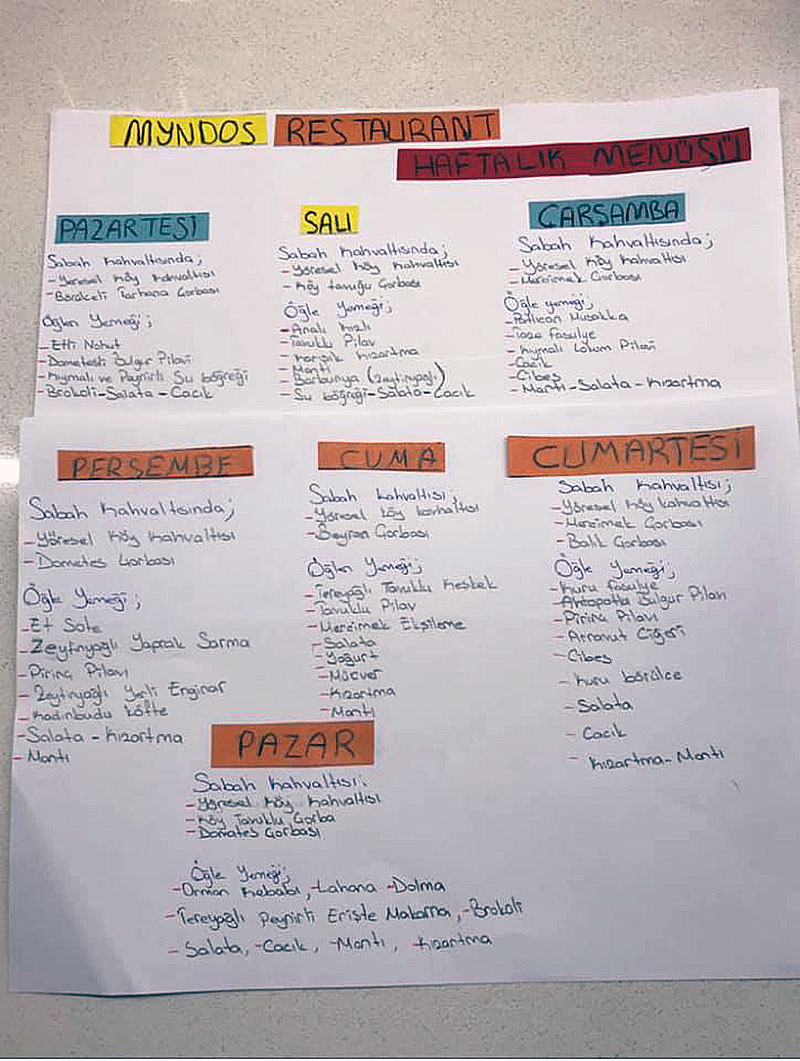 MYNDOS RESTAURANT
HAFTALIK MENÜSÜ
PAZARTESİ
Sabah Kahvaltısında;
-Yöresel Köy Kahvaltısı
-Börülceli Tarhana Çorbası
Öğlen Yemeği;
-Etli Nohut
-Domatesli Bulgur Pilavı
-Kıymalı ve Peynirli Su böğreği
-Brokoli-Salata-Cacık
SALI
Sabah Kahvaltısında;
-Yöresel Köy Kahvaltısı
-Köy tavuğu Çorbası
Öğle Yemeği;
-Analı Kızlı
-Tavuklu Pilav
-Karışık Kızartma
-Mantı
-Barbunya (Zeytinyağlı)
-Su böğreği-Salata-Cacık
ÇARŞAMBA
Sabah Kahvaltısında;
-Yöresel Köy Kahvaltısı
-Mercimek Çorbası
Öğle yemeği;
-Patlıcan Musakka
-Taze fasulye
-Kıymalı Lokum Pilavı
-Cacık
-Cibes
-Mantı-Salata-Kızartma
PERŞEMBE
Sabah Kahvaltısında;
-Yöresel Köy Kahvaltısı
-Domates Çorbası
Öğle Yemeği;
-Et Sote
-Zeytinyağlı Yaprak Sarma
-Pirinç Pilavı
-Zeytinyağlı Yerli Enginar
-Kadınbudu Köfte
-Salata-Kızartma
-Mantı
CUMA
Sabah Kahvaltısı;
-Yöresel köy kavhaltısı
-Beyran Çorbası
Öğlen Yemeği;
-Tereyağlı Tavuklu Keşkek
-Tavuklu Pilav
-Mercimek Ekşileme
-Salata
-Yoğurt
-Mücver
-Kızartma
-Mantı
CUMARTESİ
Sabah Kahvaltısı;
-Yöresel Köy kahvaltısı
-Mercimek Çorbası
-Balık Çorbası
Öğle Yemeği;
-Kuru fasulye
-Ahtapotlu Bulgur Pilavı
-Pirinç Pilavı
-Arnavut Ciğeri
-Cibes
-Kuru börülce
-Salata
-Cacık
-Kızartma-Mantı
PAZAR
Sabah Kahvaltısı;
-Yöresel Köy Kahvaltısı
-Köy Tavuklu Çorba
-Domates Çorbası
Öğle Yemeği;
-Orman Kebabı, -Lahana -Dolma
-Tereyağlı Peynirli Erişte Makarna, -Brokoli
-Salata, -Cacık, -Mantı, -Kızartma